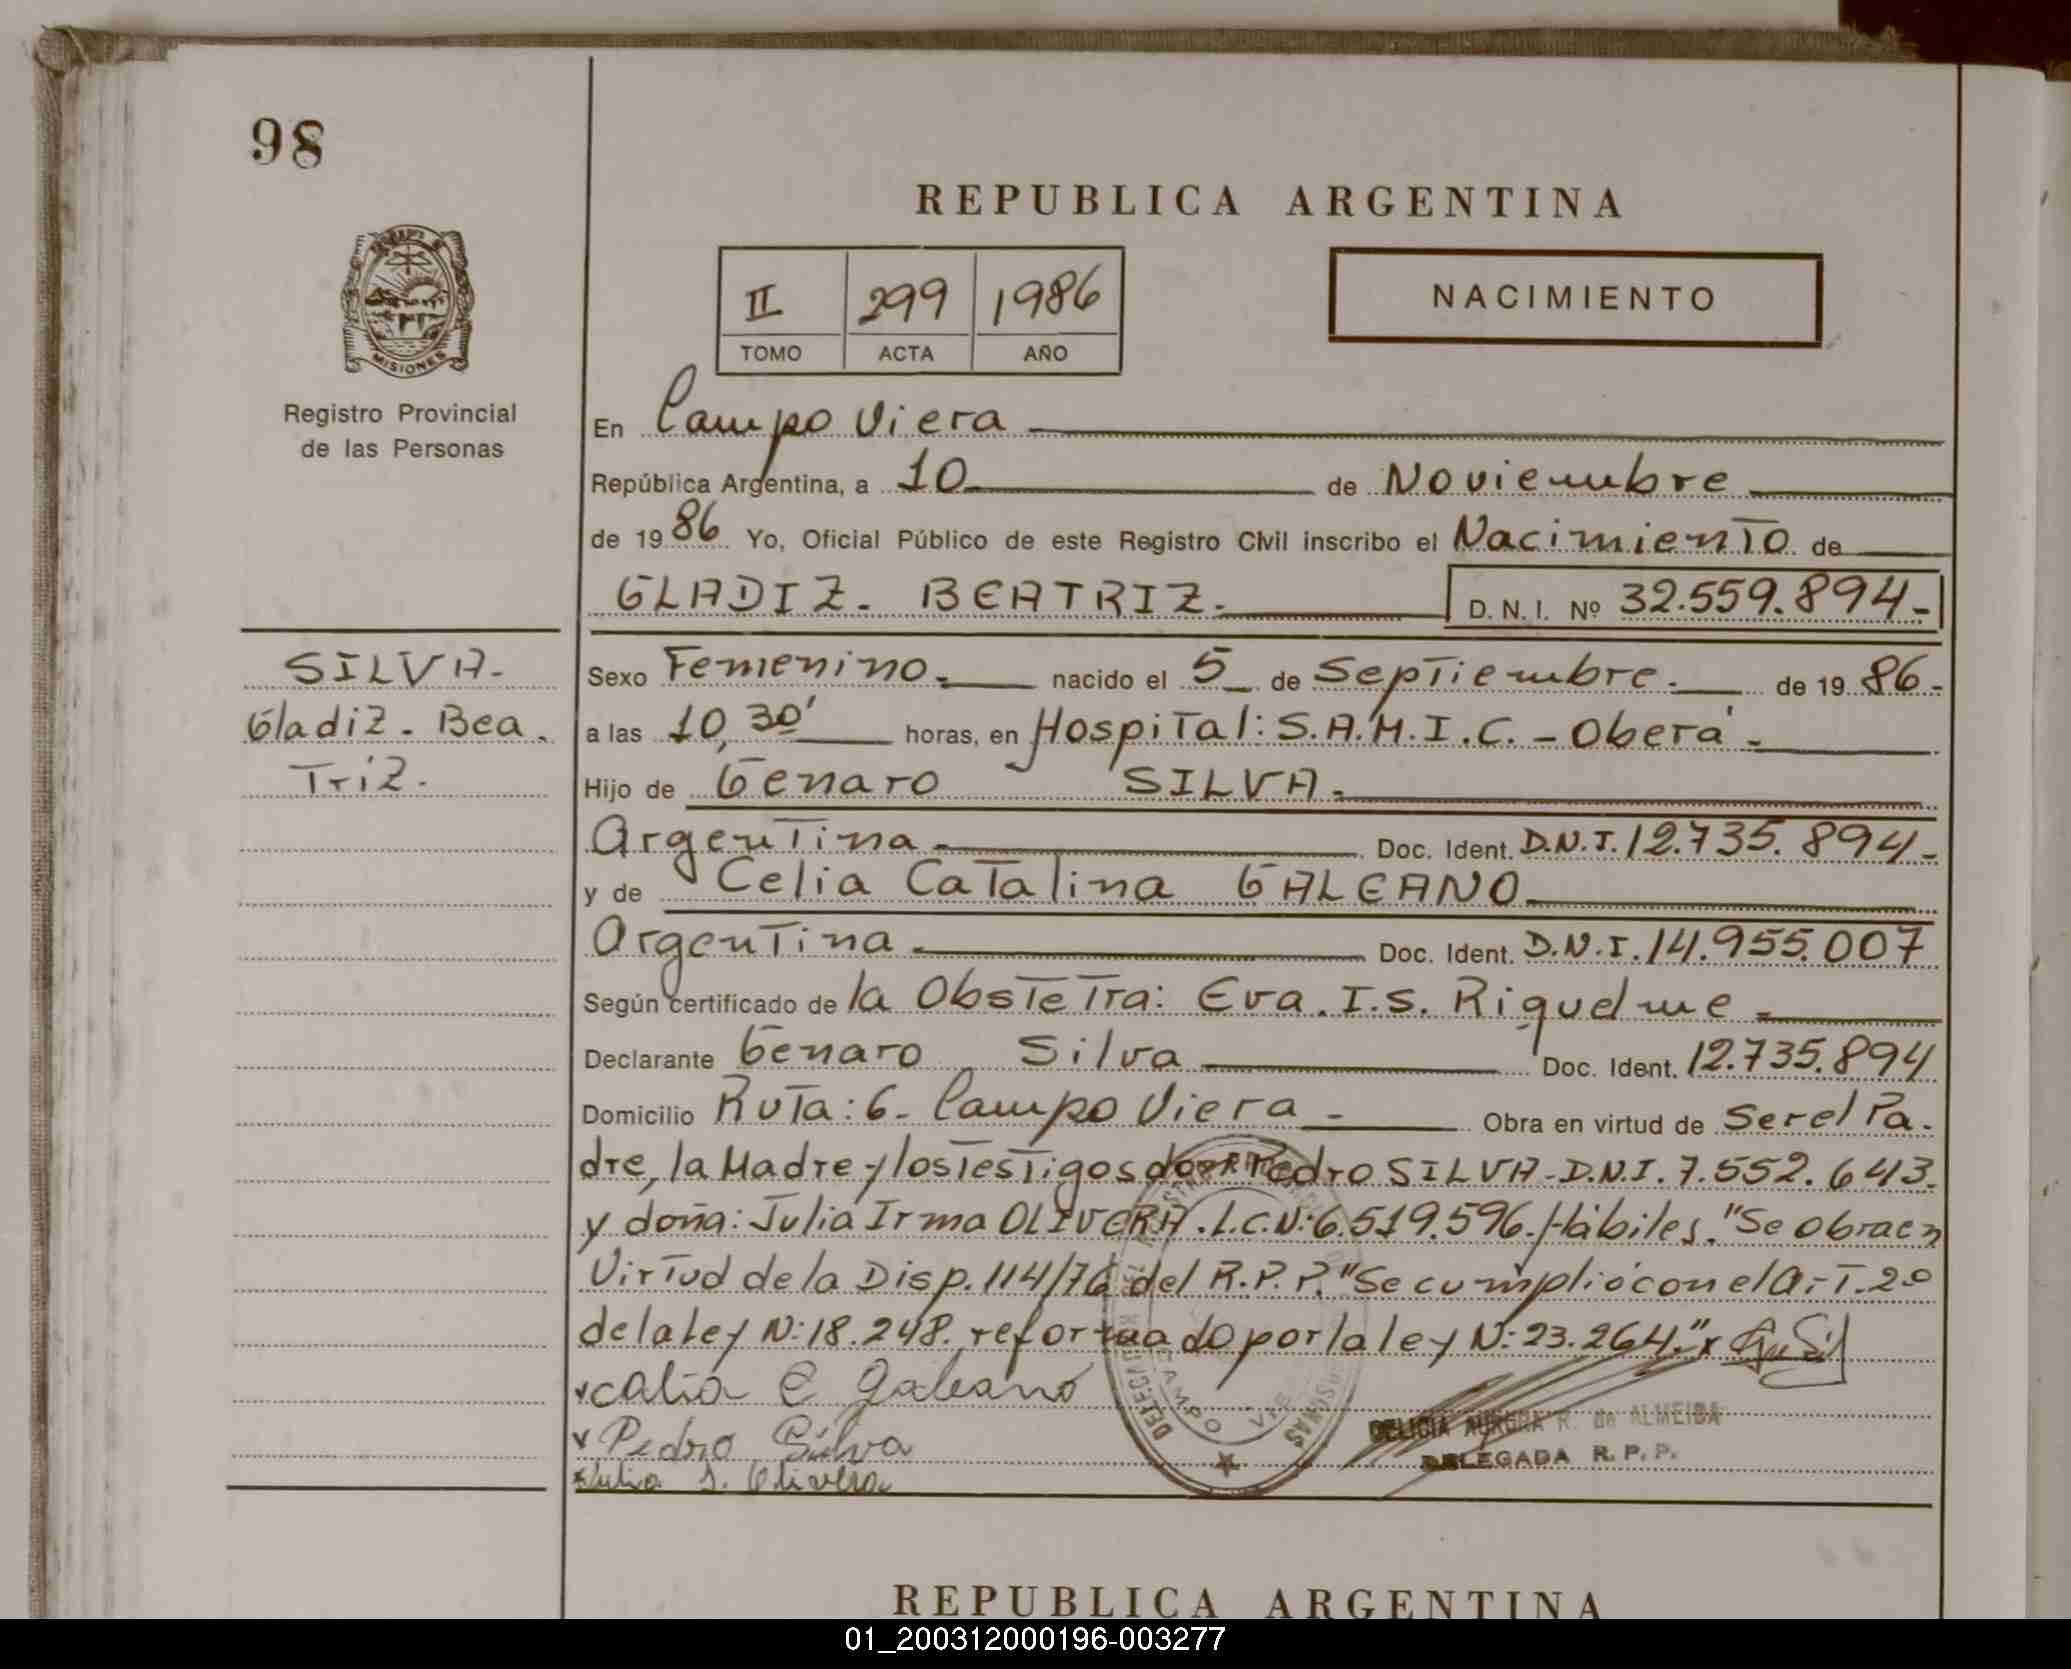 98
REPUBLICA ARGENTINA
II 299 1986
TOMO ACTA AÑO
NACIMIENTO
MISIONES
Registro Provincial
de las Personas
En Campo Viera
República Argentina, a 10 de Noviembre
de 1986 Yo, Oficial Público de este Registro Civil inscribo el Nacimiento de
GLADIZ. BEATRIZ. D. N. I. Nº 32.559.894-
SILVA-
Gladiz. Bea.
Triz.
Sexo Femenino. nacido el 5 de Septiembre. de 1986-
a las 10,30' horas, en Hospital: S.A.M.I.C. - Oberá-
Hijo de Genaro SILVA.
Argentina- Doc. Ident. D.N.I. 12.735.894-
y de Celia Catalina GALEANO
Argentina. Doc. Ident. D.N.I. 14.955.007
Según certificado de la Obstetra: Eva. I.S. Riquelme-
Declarante Genaro Silva Doc. Ident. 12.735.894
Domicilio Ruta: 6- Campo Viera- Obra en virtud de Ser el Pa-
dre, la Madre y los Testigos don Pedro SILVA-D.N.I. 7.552.643.
y doña: Julia Irma OLIVERA. L.C.N: 6.519.596. Hábiles. "Se obra en
Virtud de la Disp. 114/76 del R.P.P. "Se cumplió con el Art. 2º
de la Ley N: 18.248. reformado por la ley N: 23.264." x
x Calia C Galeano
x Pedro Silva
x Julia I. Olivera
DELICIA AURORA R. de ALMEIDA
DELEGADA R. P. P.
CAMPO
REPUBLICA ARGENTINA
01_200312000196-003277